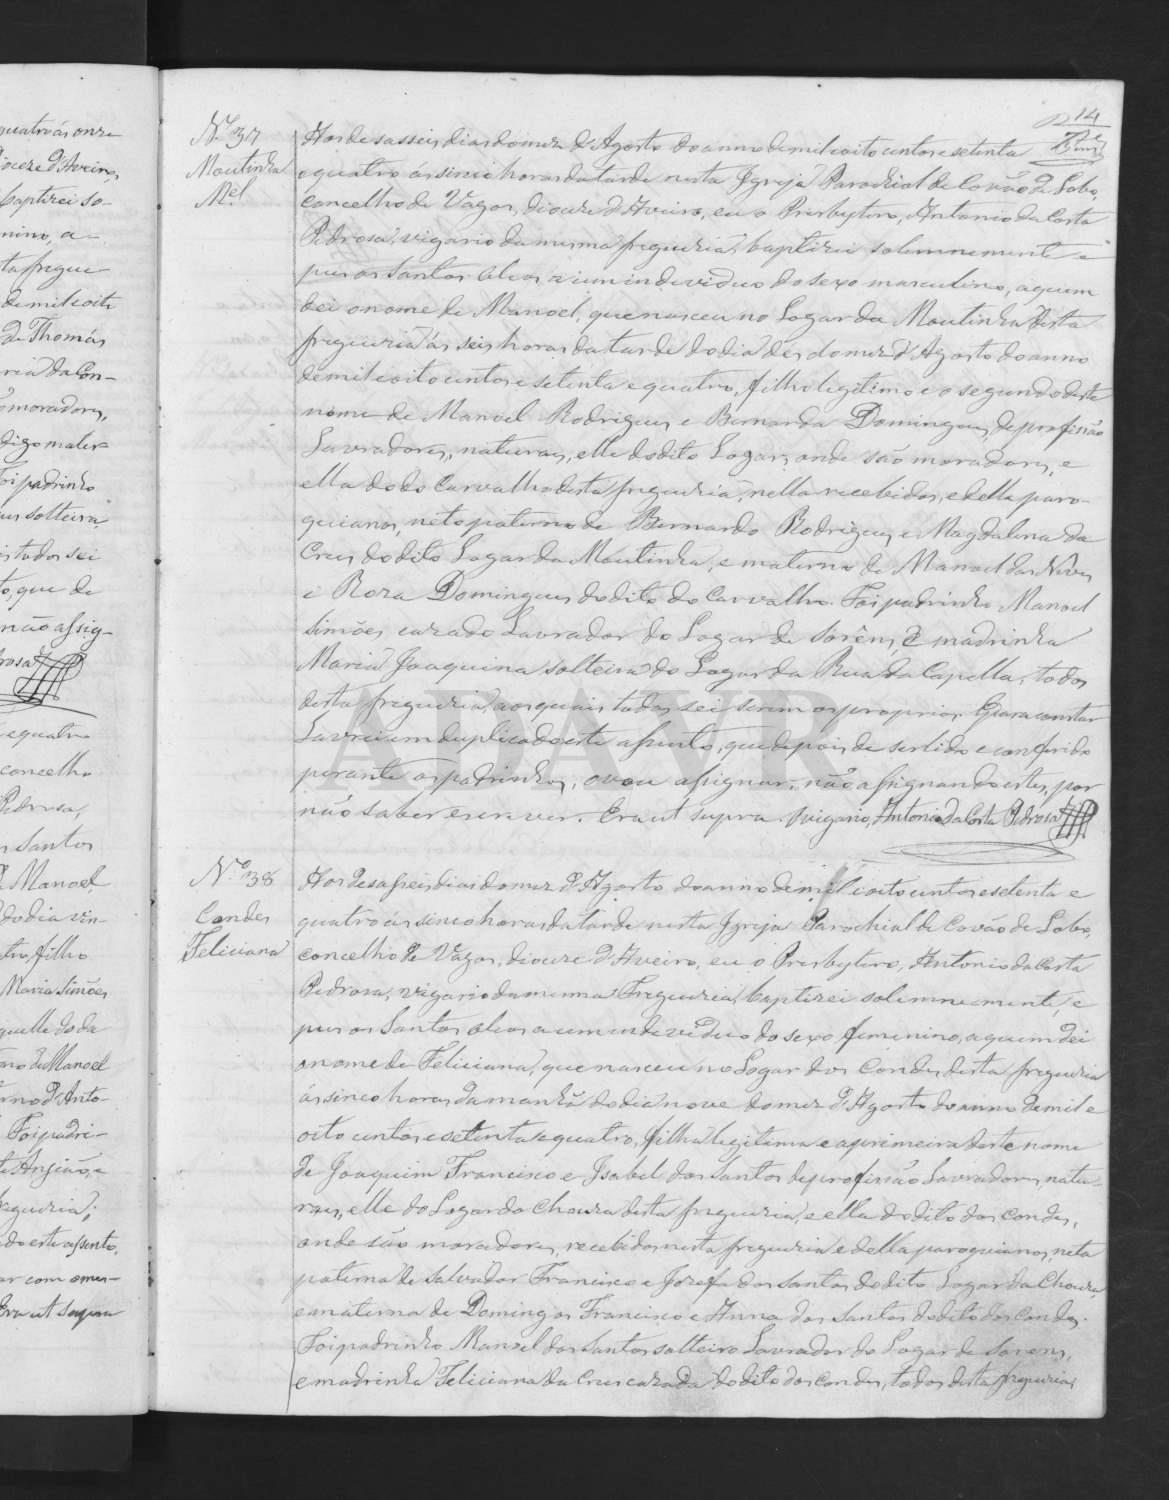 14
N.º 37
Moutinha
M.el
Aos desasseis dias do mez d'Agosto do anno de mil e oito centos e setenta
e quatro ás sinco horas da tarde nesta Igreja Parochial de Covão de Lobo,
concelho de Vagos, diocese d'Aveiro, eu o Presbytero, Antonio da Costa
Pedrosa, vigario da mesma freguezia, baptizei solemnemente e
pus os Santos oleos a um individuo do sexo masculino, a quem
dei o nome de Manoel, que nasceu no Logar da Moutinha desta
freguezia ás seis horas da tarde do dia des do mez d'Agosto do anno
de mil e oito centos e setenta e quatro, filho legitimo e o segundo deste
nome de Manoel Rodrigues e Bernarda Domingues, de profissão
Lavradores, naturaes, elle do dito Logar, onde são moradores, e
ella do do Carvalho desta freguezia, nella recebidos, e della paro-
quianos, neto paterno de Bernardo Rodrigues e Magdalena da
Crus do dito Logar da Moutinha, e materno de Manoel das Neves
e Roza Domingues do dito do Carvalho. Foi padrinho Manoel
Simões cazado Lavrador do Logar de Sorêns, e madrinha
Maria Joaquina solteira do Logar da Rua da Capella, todos
desta freguezia, aos quais todos sei serem os proprios. E para constar
Lavrei em duplicado este assento, que depois de ser lido e conferido
perante os padrinhos, o vou assignar, não assignando estes, por
não saber escrever. Era ut supra. O vigario, Antonio da Costa Pedrosa
N.º 38
Condes
Feliciana
Aos desasseis dias do mez d'Agosto do anno de mil e oito centos e setenta e
quatro ás sinco horas da tarde nesta Igreja Parochial de Covão de Lobo,
concelho de Vagos, diocese d'Aveiro, eu o Presbytero, Antonio da Costa
Pedrosa, vigario da mesma Freguezia, baptizei solemnemente, e
pus os Santos oleos a um individuo do sexo femenino, a quem dei
o nome de Feliciana, que nasceu no Logar dos Condes, desta freguezia
ás sinco horas da manhã do dia nove do mez d'Agosto do anno de mil e
oito centos e setenta e quatro, filha legitima e a primeira deste nome
de Joaquim Francisco e Isabel dos Santos de profissão Lavradores, natu-
raes, elle do Logar da Chousa desta freguezia, e ella do dito dos Condes,
onde são moradores, recebidos nesta freguezia e della paroquianos, neta
paterna de Salvador Francisco e Jozefa dos Santos do dito Logar da Chousa,
e materna de Domingos Francisco e Anna dos Santos do dito dos Condes.
Foi padrinho Manoel dos Santos solteiro Lavrador do Logar de Sorens,
e madrinha Feliciana da Crus cazada do dito dos Condes, todos desta freguezia,
ADAVR